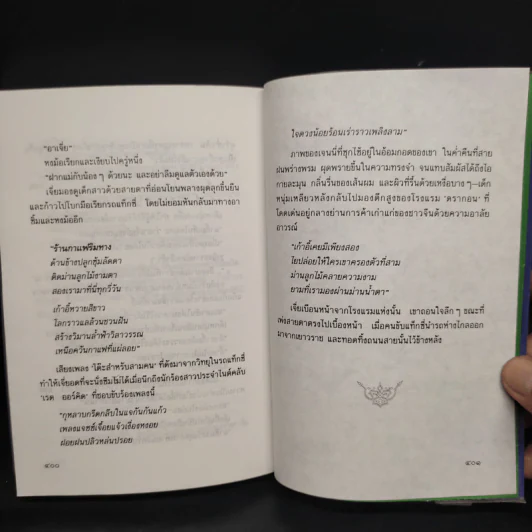 "อาเจี่ย"
หงม้อเรียกและเงียบไปครู่หนึ่ง
"ฝากแม่กับน้อง ๆ ด้วยนะ และอย่าลืมดูแลตัวเองด้วย"
เจี่ยมองดูเด็กสาวด้วยสายตาที่อ่อนโยนพลางผุดลุกขึ้นยืน
และก้าวไปโบกมือเรียกรถแท็กซี่ โดยไม่ยอมหันกลับมาทางอา
ซิ้มและหงม้ออีก
"ร้านกาแฟริมทาง
ด้านข้างปลูกซุ้มลัดดา
ติดม่านลูกไม้งามตา
สองเรามาที่นี่ทุกวี่วัน
เก้าอี้หวายสีขาว
โลกราวแลล้วนชวนฝัน
สร้างวิมานล้ำฟ้าวิลาวรรณ
เหนือควันกาแฟที่แผ่ลอย"
เสียงเพลง 'โต๊ะสำหรับสามคน' ที่ดังมาจากวิทยุในรถแท็กซี่
ทำให้เจี่ยอดที่จะนั่งซึมไม่ได้เมื่อนึกถึงนักร้องสาวประจำไนต์คลับ
'เรด ออร์คิด' ที่ชอบขับร้องเพลงนี้
"กุหลาบกรีดกลีบในแจกันก้นแก้ว
เพลงแจซซ์เจื้อยแจ้วเรื่องหงอย
ฝอยฝนปลิวหล่นปรอย
๔๐๐
ใจดวงน้อยร้อนเร่าราวเพลิงลาม"
ภาพของเจนนี่ที่ซุกไซ้อยู่ในอ้อมกอดของเขา ในค่ำคืนที่สาย
ฝนพร่างพรม ผุดพรายขึ้นในความทรงจำ จนแทบสัมผัสได้ถึงไอ
กายละมุน กลิ่นรื่นของเส้นผม และผิวที่รื้นด้วยเหงื่อบาง ๆ—เด็ก
หนุ่มเหลียวหลังกลับไปมองตึกสูงของโรงแรม 'ดรากอน' ที่
โดดเด่นอยู่กลางย่านการค้าเก่าแก่ของชาวจีนด้วยความอาลัย
อาวรณ์
"เก้าอี้เคยมีเพียงสอง
ใยปล่อยให้ใครเขาครองตัวที่สาม
ม่านลูกไม้คลายความงาม
ยามที่เรามองผ่านม่านน้ำตา"
เจี่ยเบือนหน้าจากโรงแรมแห่งนั้น เขาถอนใจลึก ๆ ขณะที่
เพ่งสายตาตรงไปเบื้องหน้า เมื่อคนขับแท็กซี่นำรถห่างไกลออก
มาจากเยาวราช และทอดทิ้งถนนสายนั้นไว้ข้างหลัง
๔๐๑